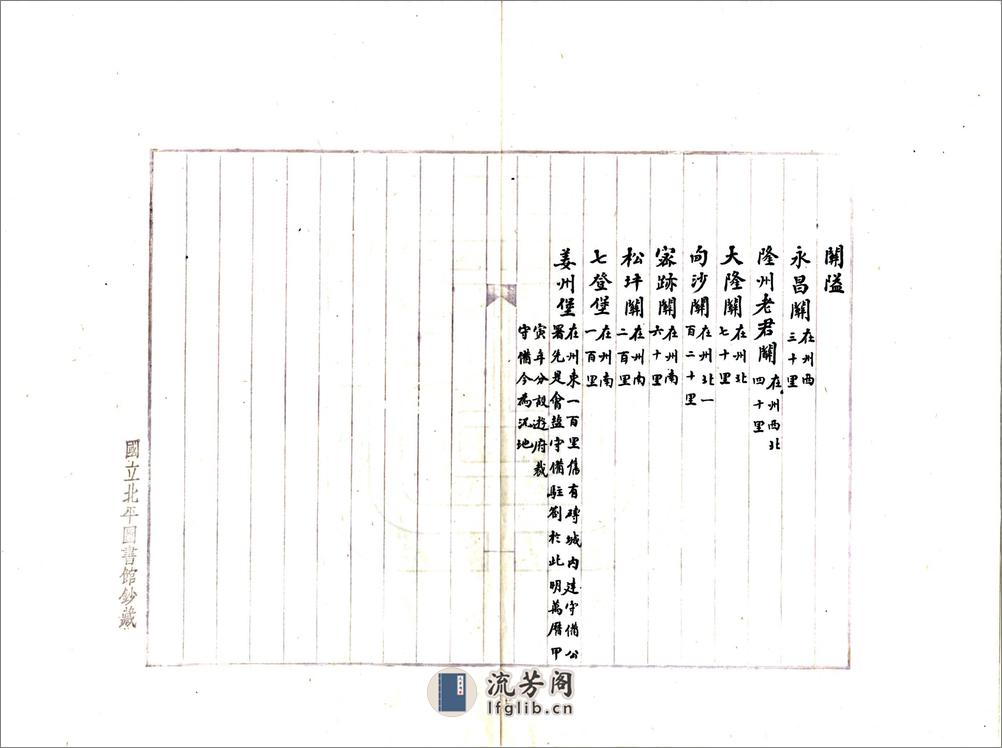 關隘
永昌關在州西三十里
隆州老君關在州西北四十里
大隆關在州北七十里
甸沙關在州北一百二十里
密跡關在州南六十里
松坪關在州南二百里
七登堡在州南一百里
姜州堡在州東一百里舊有磚城內建守備公
署先是會鹽守備駐劄於此明萬曆甲
寅年分設遊府裁
守備今為汛地
國立北平圖書館鈔藏
流芳阁
lfglib.cn